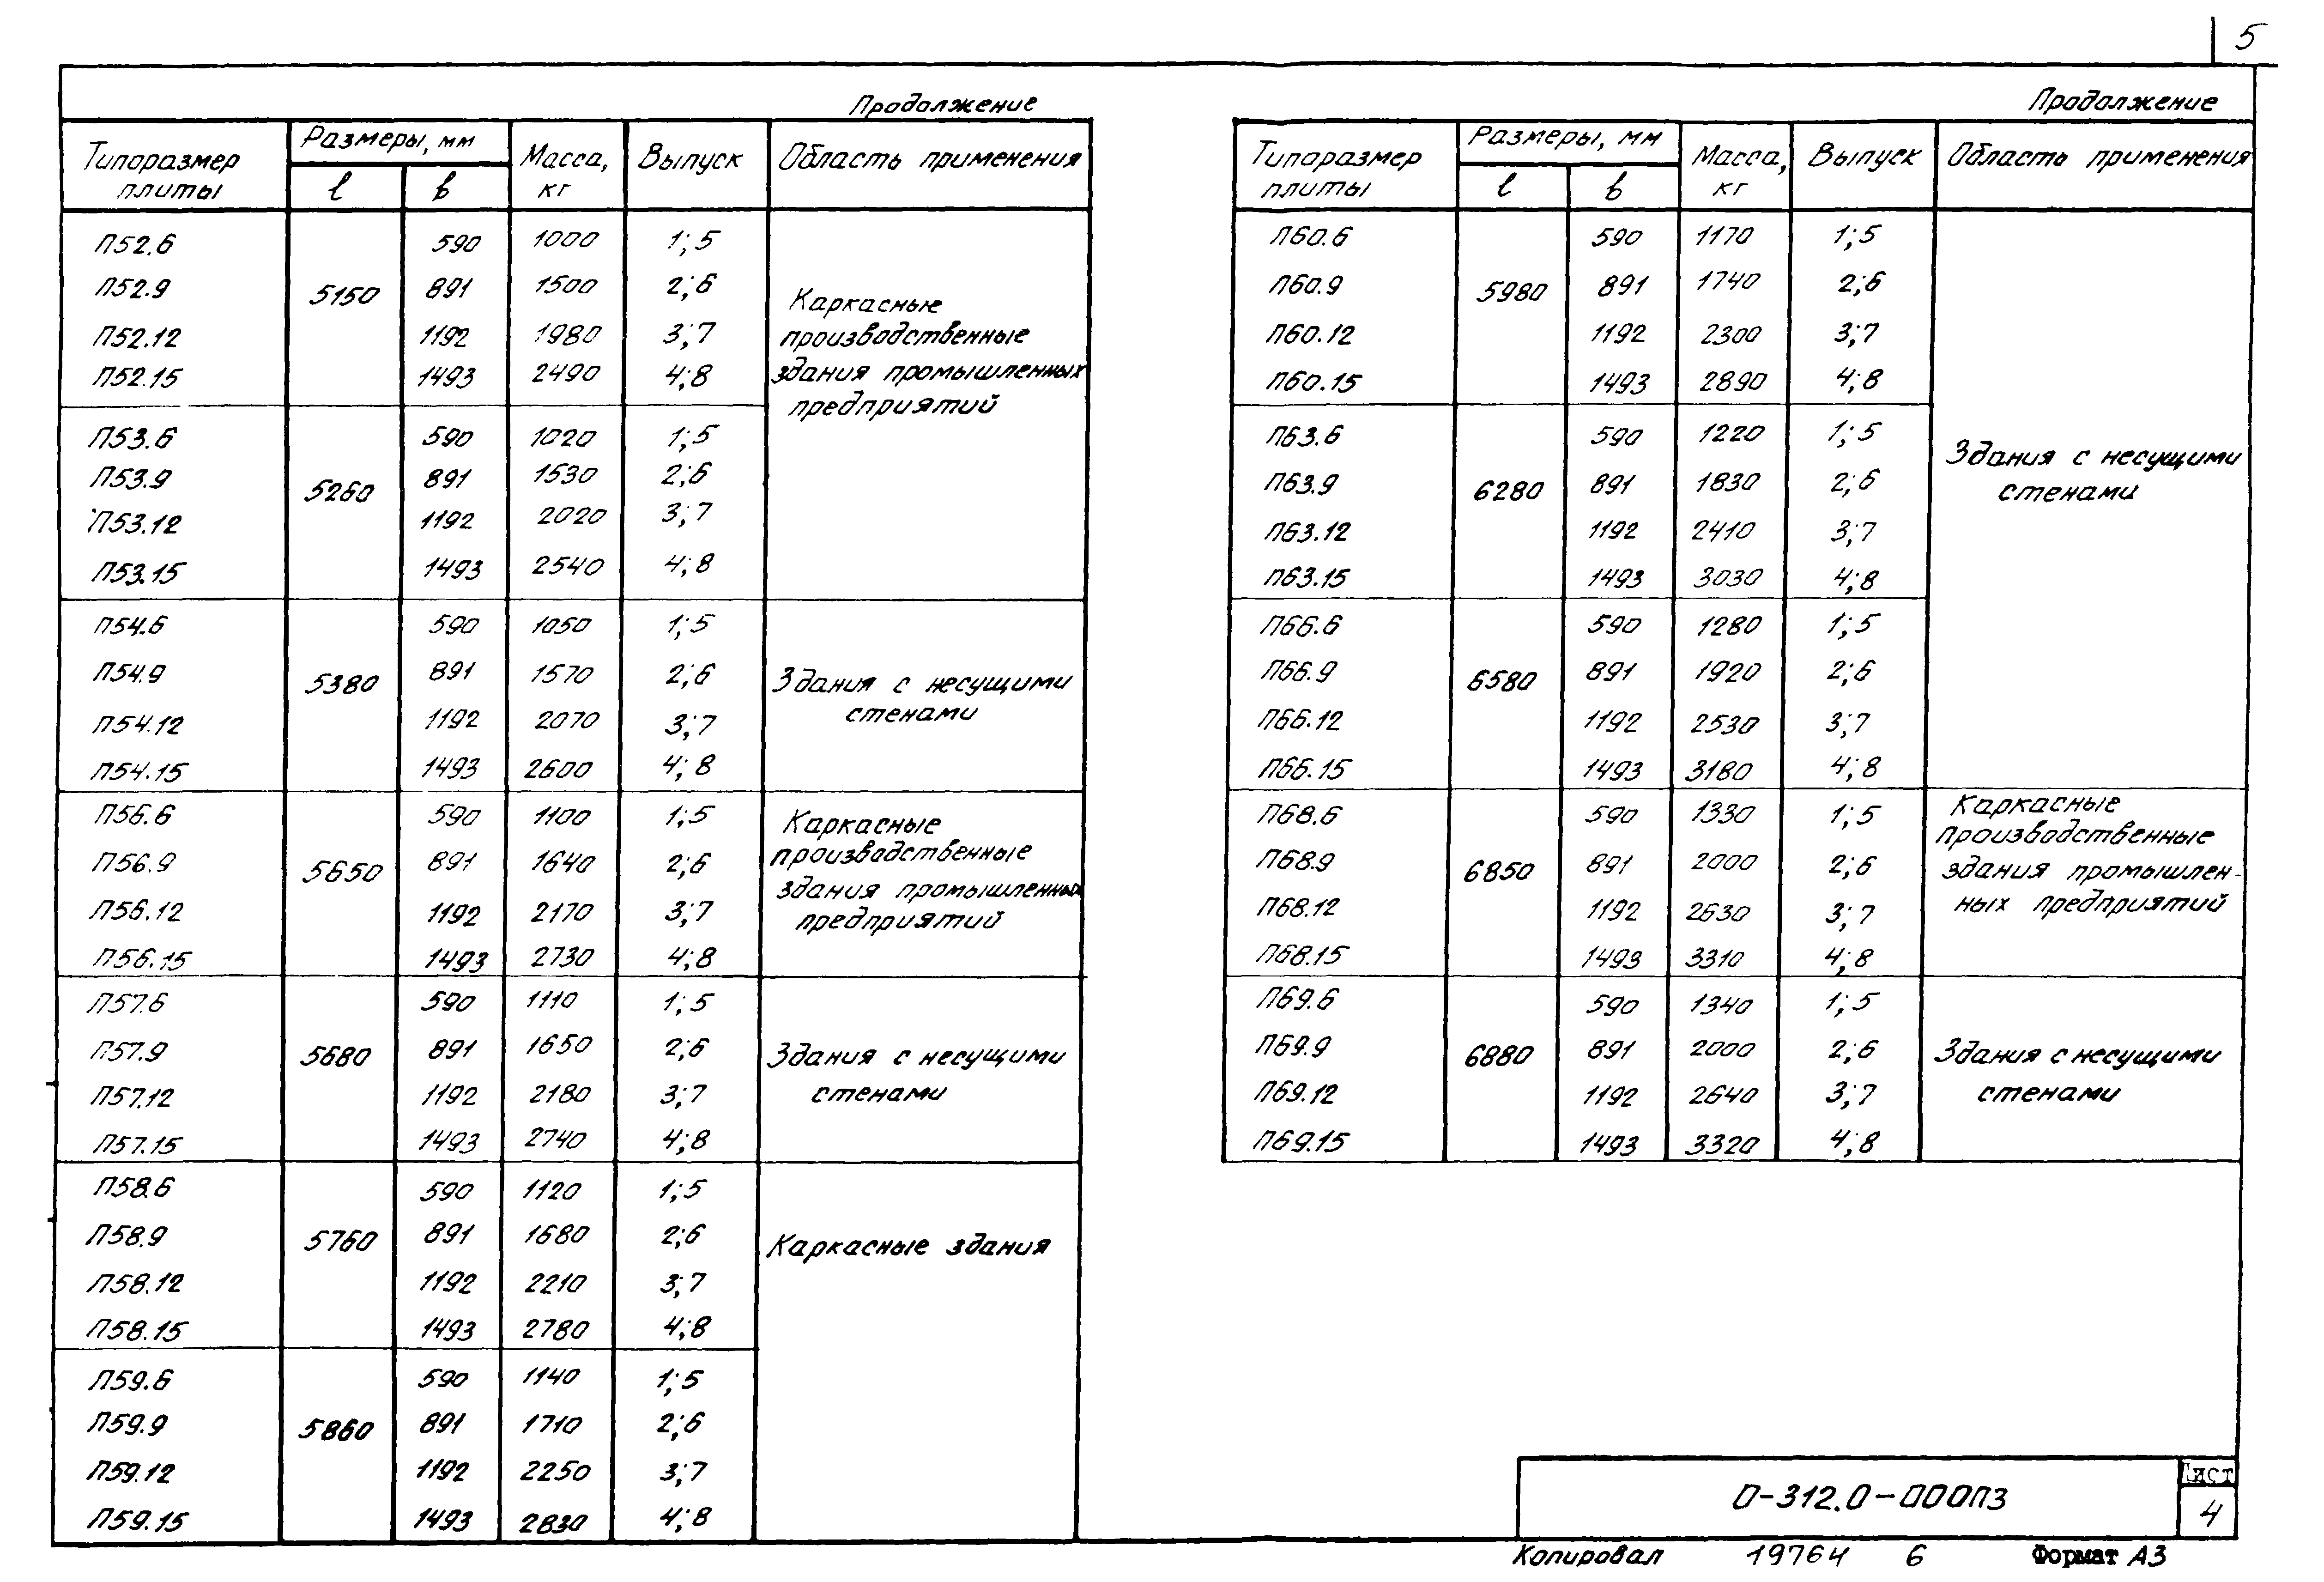 5
Продолжение
Типоразмер плиты Размеры, мм Масса, кг Выпуск Область применения
l b
П52.6 590 1000 1;5
П52.9 5150 891 1500 2;6 Каркасные
П52.12 1192 1980 3;7 производственные
П52.15 1493 2490 4;8 здания промышленных
предприятий
П53.6 590 1020 1;5
П53.9 5260 891 1530 2;6
П53.12 1192 2020 3;7
П53.15 1493 2540 4;8
П54.6 590 1050 1;5
П54.9 5380 891 1570 2;6 Здания с несущими
П54.12 1192 2070 3;7 стенами
П54.15 1493 2600 4;8
П56.6 590 1100 1;5 Каркасные
П56.9 5650 891 1640 2;6 производственные
П56.12 1192 2170 3;7 здания промышленных
П56.15 1493 2730 4;8 предприятий
П57.6 590 1110 1;5
П57.9 5680 891 1650 2;6 Здания с несущими
П57.12 1192 2180 3;7 стенами
П57.15 1493 2740 4;8
П58.6 590 1120 1;5
П58.9 5760 891 1680 2;6 Каркасные здания
П58.12 1192 2210 3;7
П58.15 1493 2780 4;8
П59.6 590 1140 1;5
П59.9 5860 891 1710 2;6
П59.12 1192 2250 3;7
П59.15 1493 2830 4;8
Продолжение
Типоразмер плиты Размеры, мм Масса, кг Выпуск Область применения
l b
П60.6 590 1170 1;5
П60.9 5980 891 1740 2;6
П60.12 1192 2300 3;7
П60.15 1493 2890 4;8
П63.6 590 1220 1;5 Здания с несущими
П63.9 6280 891 1830 2;6 стенами
П63.12 1192 2410 3;7
П63.15 1493 3030 4;8
П66.6 590 1280 1;5
П66.9 6580 891 1920 2;6
П66.12 1192 2530 3;7
П66.15 1493 3180 4;8
П68.6 590 1330 1;5 Каркасные
производственные
П68.9 6850 891 2000 2;6 здания промышлен-
П68.12 1192 2630 3;7 ных предприятий
П68.15 1493 3310 4;8
П69.6 590 1340 1;5
П69.9 6880 891 2000 2;6 Здания с несущими
П69.12 1192 2640 3;7 стенами
П69.15 1493 3320 4;8
0-312.0-000ПЗ
Лист
4
Копировал 19764 6 Формат А3